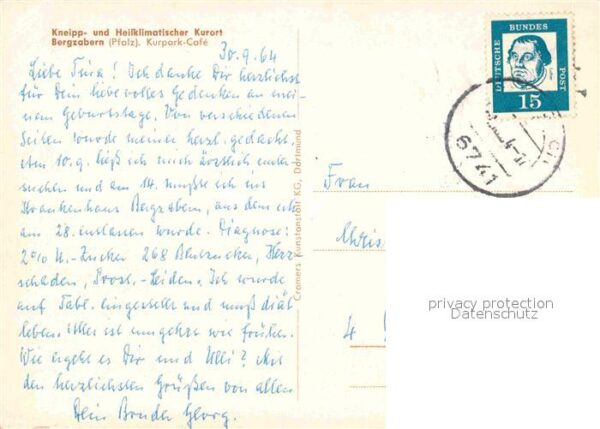 Kneipp- und Heilklimatischer Kurort
Bergzabern (Pfalz). Kurpark-Café
30.9.64
Liebe Tina! Ich danke Dir herzlichst
für Dein liebevolles Gedenken an mei-
nem Geburtstage. Von verschiedenen
Seiten wurde meiner herzl. gedacht.
Am 10.9. ließ ich mich ärztlich unter-
suchen und am 14. mußte ich ins
Krankenhaus Bergzabern, aus dem ich
am 28. entlassen wurde. Diagnose:
2% U.-Zucker 268 Blutzucker, Herz-
schaden, Prost.-Leiden. Ich wurde
auf Tabl. eingestellt und muß diät
leben. Alles ist umgekehrt wie früher.
Wie ergeht es Dir und Ulli? Mit
den herzlichsten Grüßen von allen
Dein Bruder Georg.
Cramers Kunstanstalt KG, Dortmund
DEUTSCHE BUNDES POST
15
6741
Frau
4
privacy protection
Datenschutz